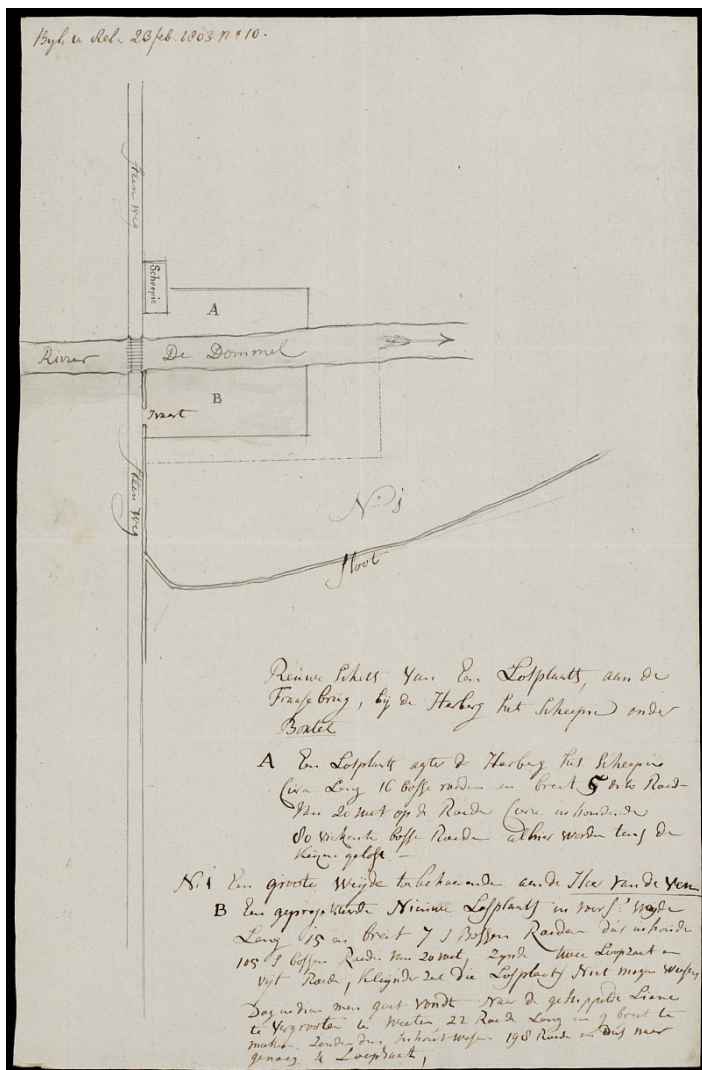 Byl: u Rel: 23 feb. 1803 N:o 10.
Stein Weg
Scheepie
A
Rivier De Dommel
B
Stein Weg
N:o 1
sloot
Rieuwe Schets Van Een Losplaats, aan de
Franse brug, bij de Herberg het Scheepie onder
Boxtel
A Een Losplaats agter de Herberg het Scheepie
Circa Lang 16 bosse roeden en breet 5 dito Roed
Van 20 voet op de Roede Circa inhoudende
80 vierkante bosse Roeden alhier worden tans de
gelost. -
N:o 1 Een groote Weijde toebehoorende aan de Heer van de Ven
B Een geprojecteerde Nieuwe Losplaats in voors: Weijde
Lang 15 en breet 7 Bossen Roeden dus inhoude
105 Bossen Roeden van 20 voet, Zijnde twee Loopzaet en
vijf Roede, Kleijnder zal die Losplaats Niet mogen Wesen
Dog indien men goet Vondt Naar de gestippelde Linie
te Vergrooten te Weeten 22 Roede Lang en 9 breet te
maken. Zoude dus Inhout Wesen 198 Roede en Dus naer
genoeg 4 Loopzaet,